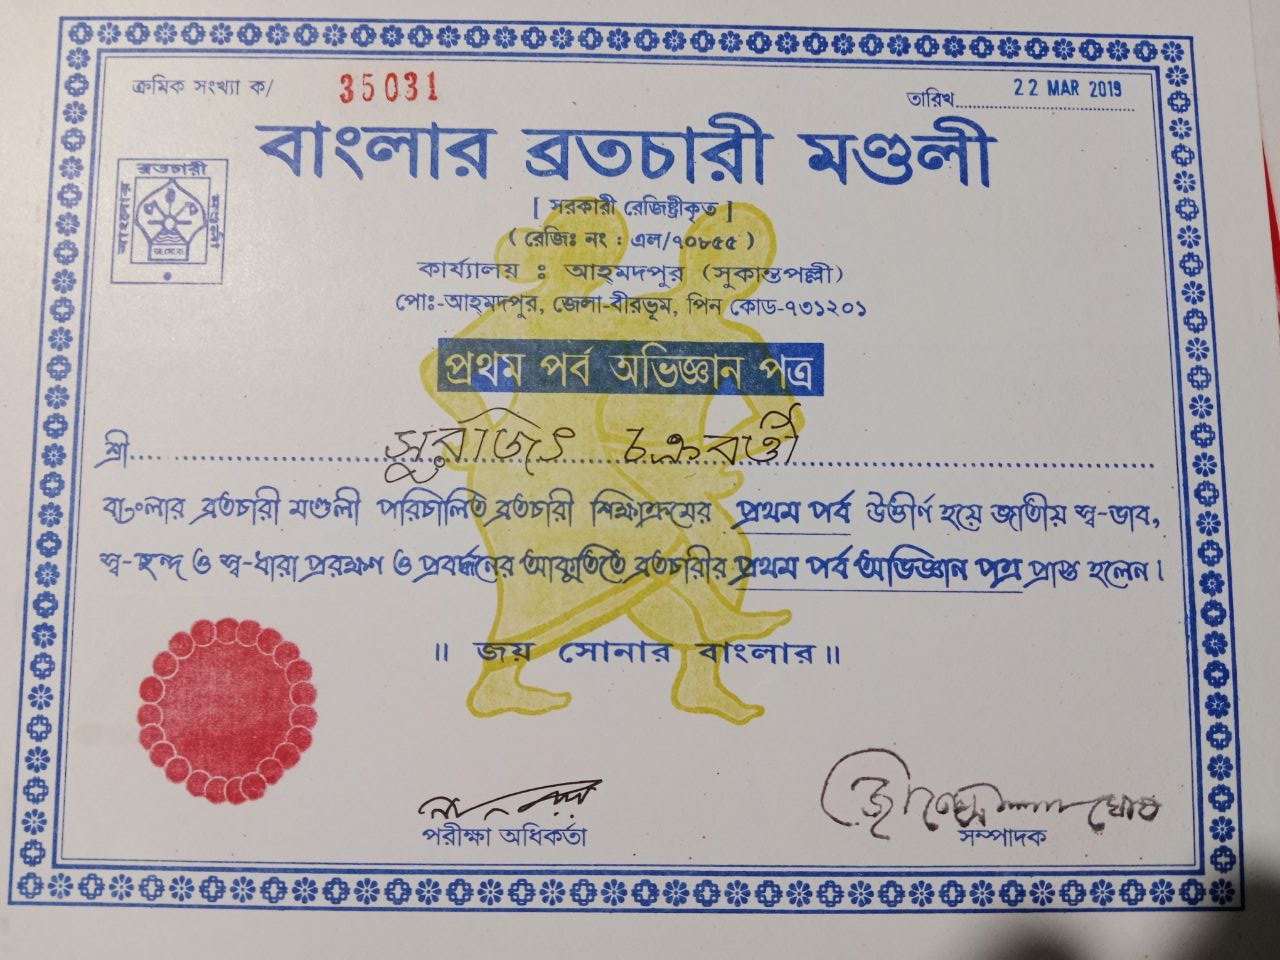 ক্রমিক সংখ্যা ক/ 35031
তারিখ.......... 22 MAR 2019
বাংলার ব্রতচারী মণ্ডলী
ব্রতচারী
বাংলার
মণ্ডলী
[ সরকারী রেজিষ্ট্রীকৃত ]
( রেজিঃ নং : এল/৭০৮৫৫ )
কার্য্যালয় : আহ্‌মদপুর (সুকান্তপল্লী)
পোঃ-আহ্‌মদপুর, জেলা-বীরভূম, পিন কোড-৭৩১২০১
প্রথম পর্ব অভিজ্ঞান পত্র
শ্রী.... সুরজিৎ চক্রবর্তী
বাংলার ব্রতচারী মণ্ডলী পরিচালিত ব্রতচারী শিক্ষাক্রমের প্রথম পর্ব উত্তীর্ণ হয়ে জাতীয় স্ব-ভাব,
স্ব-ছন্দ ও স্ব-ধারা প্ররক্ষণ ও প্রবর্দ্ধনের আকুতিতে ব্রতচারীর প্রথম পর্ব অভিজ্ঞান পত্র প্রাপ্ত হলেন।
॥ জয় সোনার বাংলার॥
ঘোষ
পরীক্ষা অধিকর্তা
সম্পাদক